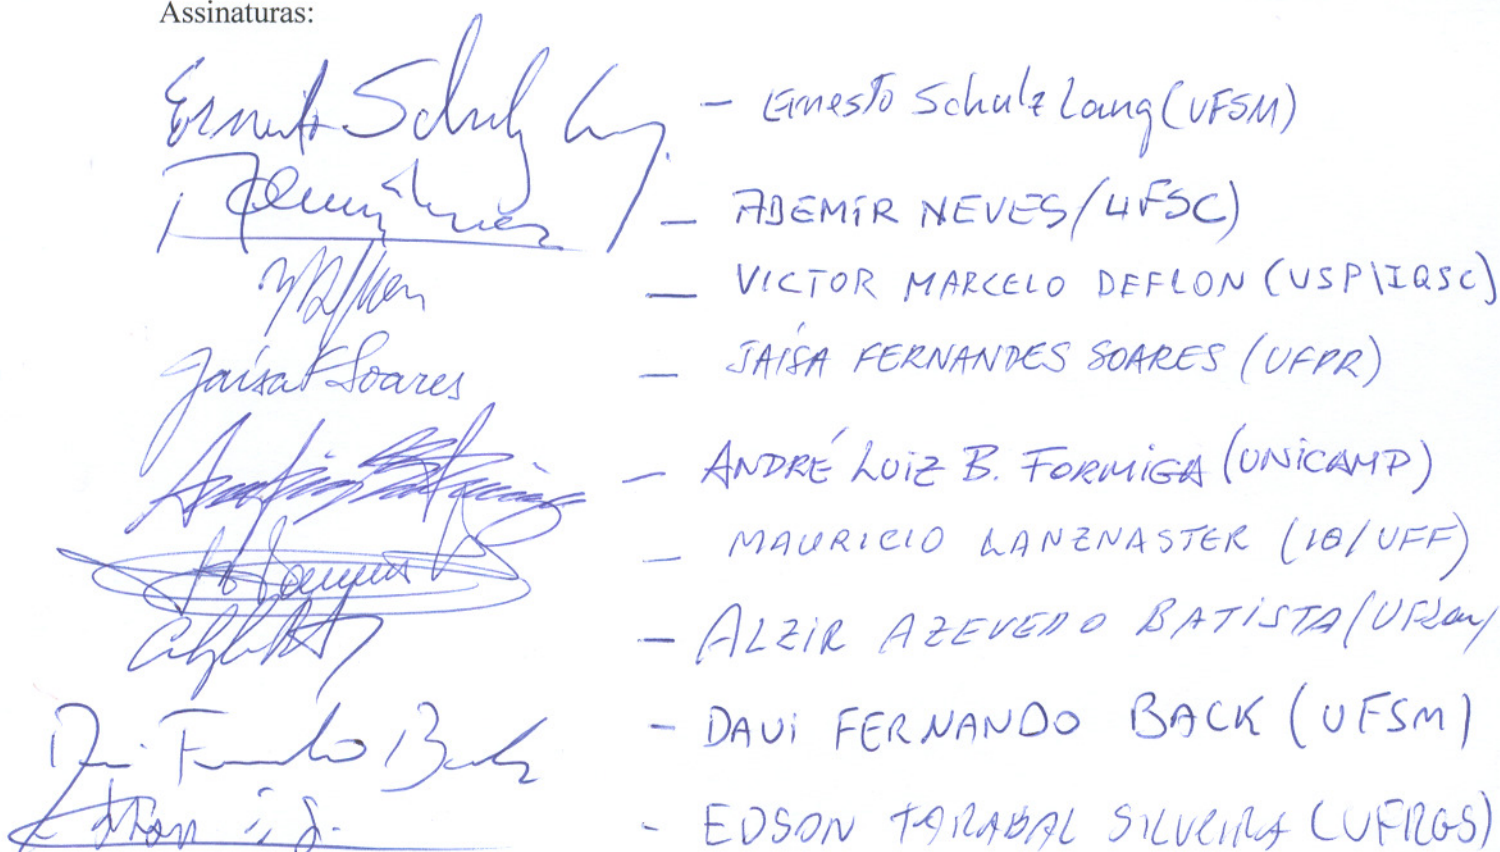 Assinaturas:
Ernesto Schulz Lang - Ernesto Schulz Lang (UFSM)
- ADEMIR NEVES/UFSC)
- VICTOR MARCELO DEFLON (USP\IQSC)
Jaísa F Soares - JAÍSA FERNANDES SOARES (UFPR)
- ANDRÉ LUIZ B. FORMIGA (UNICAMP)
- MAURICIO LANZNASTER (IQ/UFF)
- ALZIR AZEVEDO BATISTA/
Davi Fernando Back - DAVI FERNANDO BACK (UFSM)
- EDSON TARABAL SILVEIRA (UFRGS)